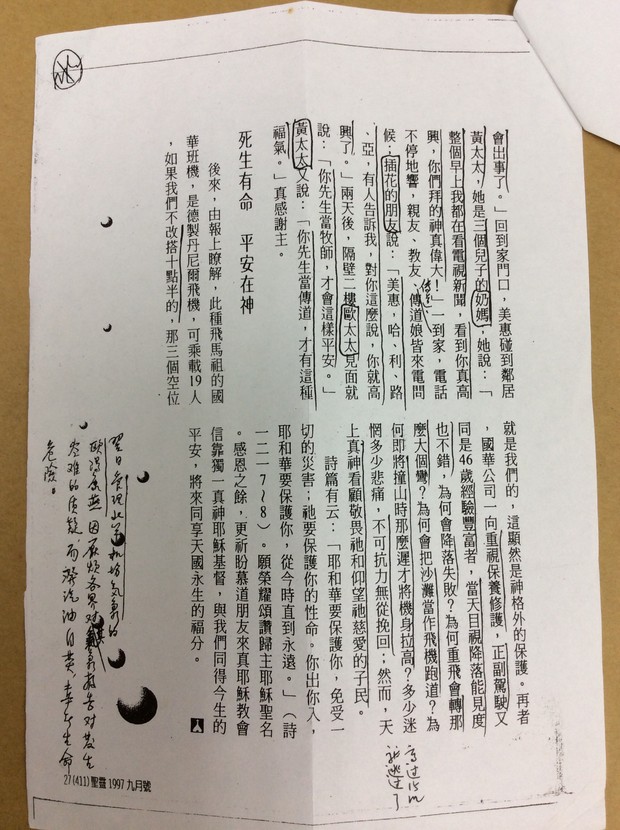 會出事了。」回到家門口，美惠碰到鄰居
黃太太，她是三個兒子的奶媽，她說：「
整個早上我都在看電視新聞，看到你真高
興，你們拜的神真偉大！」一到家，電話
不停地響，親友、教友、傳道娘皆來電問
候；插花的朋友說：「美惠，哈、利、路
、亞，有人告訴我，對你這麼說，你就高
興了。」兩天後，隔壁二樓歐太太見面就
說：「你先生當牧師，才會這樣平安。」
黃太太又說：「你先生當傳道，才有這種
福氣。」真感謝主。
死生有命　平安在神
後來，由報上瞭解，此種飛馬祖的國
華班機，是德製丹尼爾飛機，可乘載19人
，如果我們不改搭十點半的，那三個空位
就是我們的，這顯然是神格外的保護。再者
，國華公司一向重視保養修護，正副駕駛又
同是46歲經驗豐富者，當天目視降落能見度
也不錯，為何會降落失敗？為何重飛會轉那
麼大個彎？為何會把沙灘當作飛機跑道？為
何即將撞山時那麼遲才將機身拉高？多少迷
惘多少悲痛，不可抗力無從挽回；然而，天
上真神看顧敬畏祂和仰望祂慈愛的子民。
詩篇有云：「耶和華要保護你，免受一
切的災害；祂要保護你的性命。你出你入，
耶和華要保護你，從今時直到永遠。」（詩
一二一7～8）。願榮耀頌讚歸主耶穌聖名
。感恩之餘，更祈盼慕道朋友來真耶穌教會
信靠獨一真神耶穌基督，與我們同得今生的
平安，將來同享天國永生的福分。
高過15m
就逃过了
翌日管理北竿机场氣象的
危險。
27(411)聖靈 1997 九月號